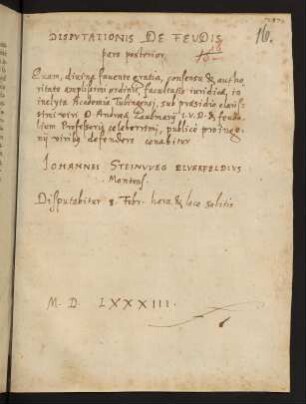 16.
DISPUTATIONIS DE FEUDIS
pars posterior,
Quam, divina favente gratia, consensu & autho
ritate amplissimi ordinis, facultatis iuridicæ, in
inclyta Academia Tubingensi, sub præsidio clariss
simi viri D. Andreæ I.V.D. & feuda
lium Professoris celeberrimi, publice pro inge
nij viribus defendere conabitur
IOHANNES STEINWEG ELVERFELDIUS
Montens.
Disputabitur 8 Febr. hora & loco solitis
M. D. LXXXIII.